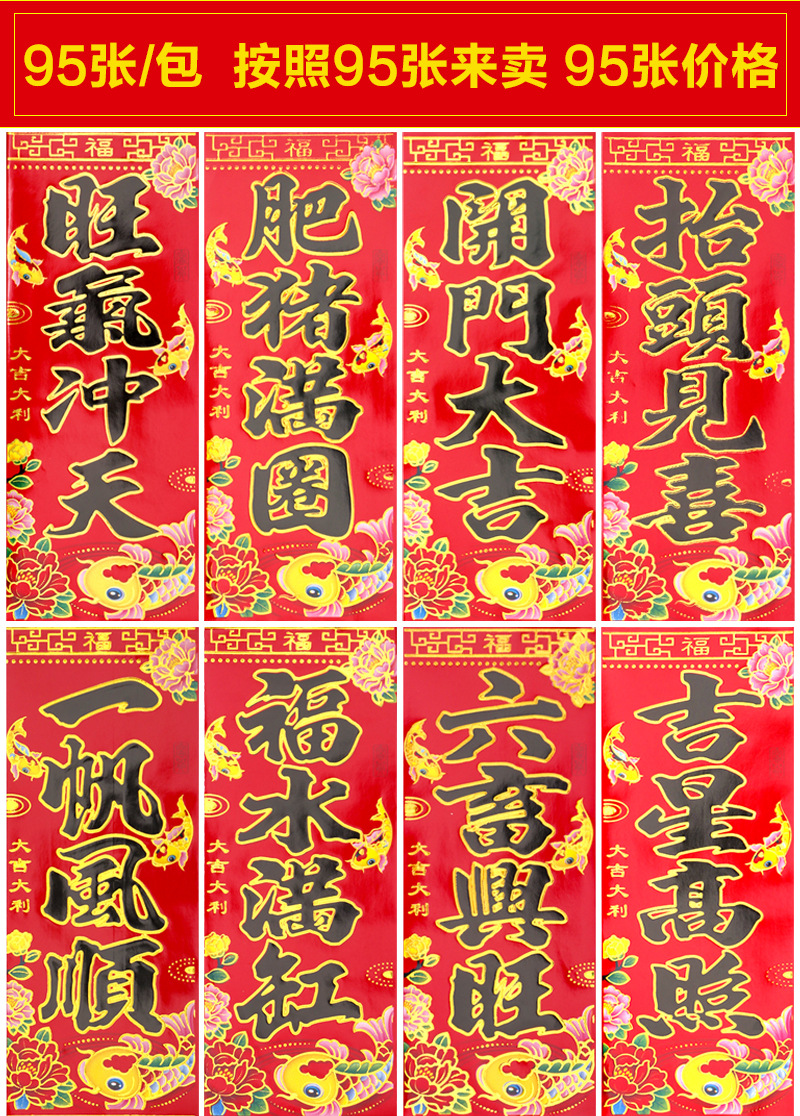 95张/包 按照95张来卖 95张价格
福
旺氣冲天
大吉大利
福
肥猪满圈
大吉大利
福
開門大吉
大吉大利
福
抬頭見喜
大吉大利
福
一帆風順
大吉大利
福
福水满缸
大吉大利
福
六畜興旺
大吉大利
福
吉星高照
大吉大利